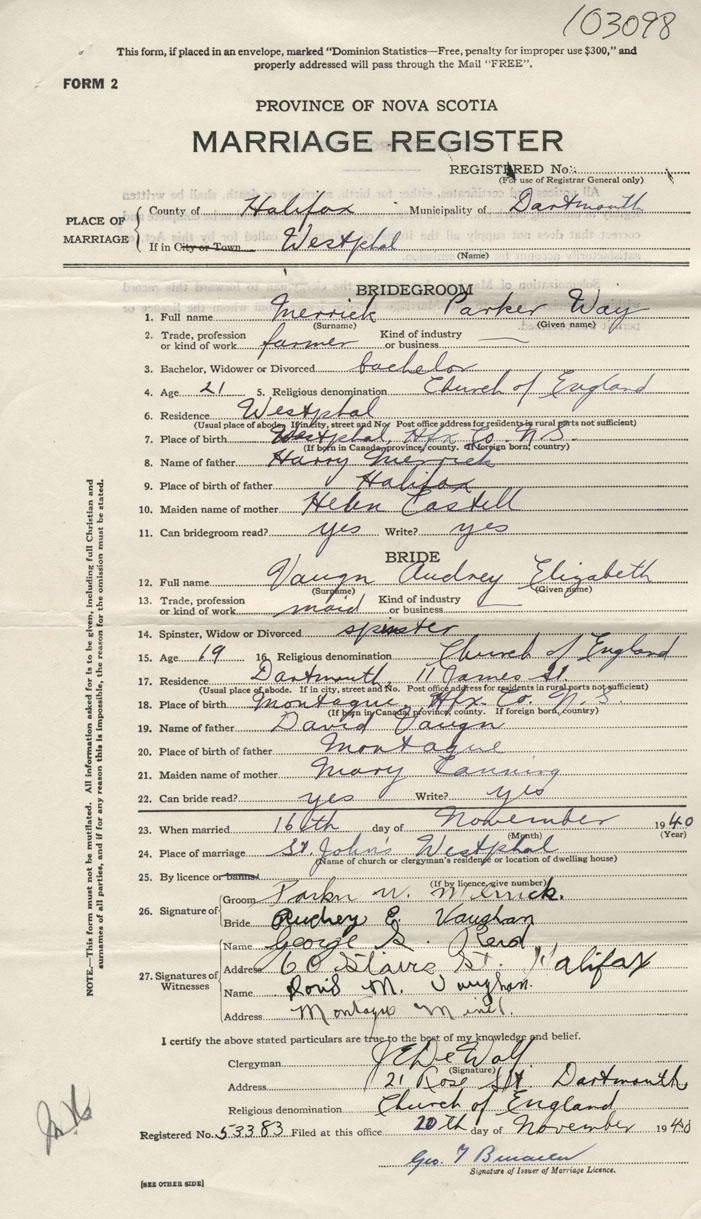 103098
This form, if placed in an envelope, marked "Dominion Statistics—Free, penalty for improper use $300," and
properly addressed will pass through the Mail "FREE".
FORM 2
PROVINCE OF NOVA SCOTIA
MARRIAGE REGISTER
REGISTERED No.
(For use of Registrar General only)
PLACE OF MARRIAGE
County of Halifax Municipality of Dartmouth
If in City or Town Westphal
(Name)
BRIDEGROOM
1. Full name Merrick Parker Way
(Surname) (Given name)
2. Trade, profession or kind of work farmer Kind of industry or business —
3. Bachelor, Widower or Divorced bachelor
4. Age 21 5. Religious denomination Church of England
6. Residence Westphal
(Usual place of abode. If in city, street and No. Post office address for residents in rural parts not sufficient)
7. Place of birth Westphal, Hfx Co. N.S.
(If born in Canada, province, county. If foreign born, country)
8. Name of father Harry Merrick
9. Place of birth of father Halifax
10. Maiden name of mother Helen Castell
11. Can bridegroom read? yes Write? yes
BRIDE
12. Full name Vaugn Audrey Elizabeth
(Surname) (Given name)
13. Trade, profession or kind of work maid Kind of industry or business —
14. Spinster, Widow or Divorced spinster
15. Age 19 16. Religious denomination Church of England
17. Residence Dartmouth, 11 James St.
(Usual place of abode. If in city, street and No. Post office address for residents in rural parts not sufficient)
18. Place of birth Montague, Hfx Co. N.S.
(If born in Canada, province, county. If foreign born, country)
19. Name of father David Vaugn
20. Place of father Montague
21. Maiden name of mother Mary Lanning
22. Can bride read? yes Write? yes
23. When married 16th day of November 1940
(Month) (Year)
24. Place of marriage St. John's Westphal
(Name of church or clergyman's residence or location of dwelling house)
25. By licence or banns
(If by licence, give number)
26. Signature of
Groom Parker W. Merrick.
Bride Audrey E. Vaughan
27. Signatures of Witnesses
Name George S. Reid
Address 60 Stairs St. Halifax
Name Doris M. Vaughan.
Address Montague
I certify the above stated particulars are true to the best of my knowledge and belief.
Clergyman J E De Wolf
(Signature)
Address 21 Rose St Dartmouth
Religious denomination Church of England
Registered No. 53383 Filed at this office 20th day of November 1940
Geo. T
Signature of Issuer of Marriage Licence.
[SEE OTHER SIDE]
NOTE.—This form must not be mutilated. All information asked for is to be given, including full Christian and
surnames of all parties, and if for any reason this is impossible, the reason for the omission must be stated.